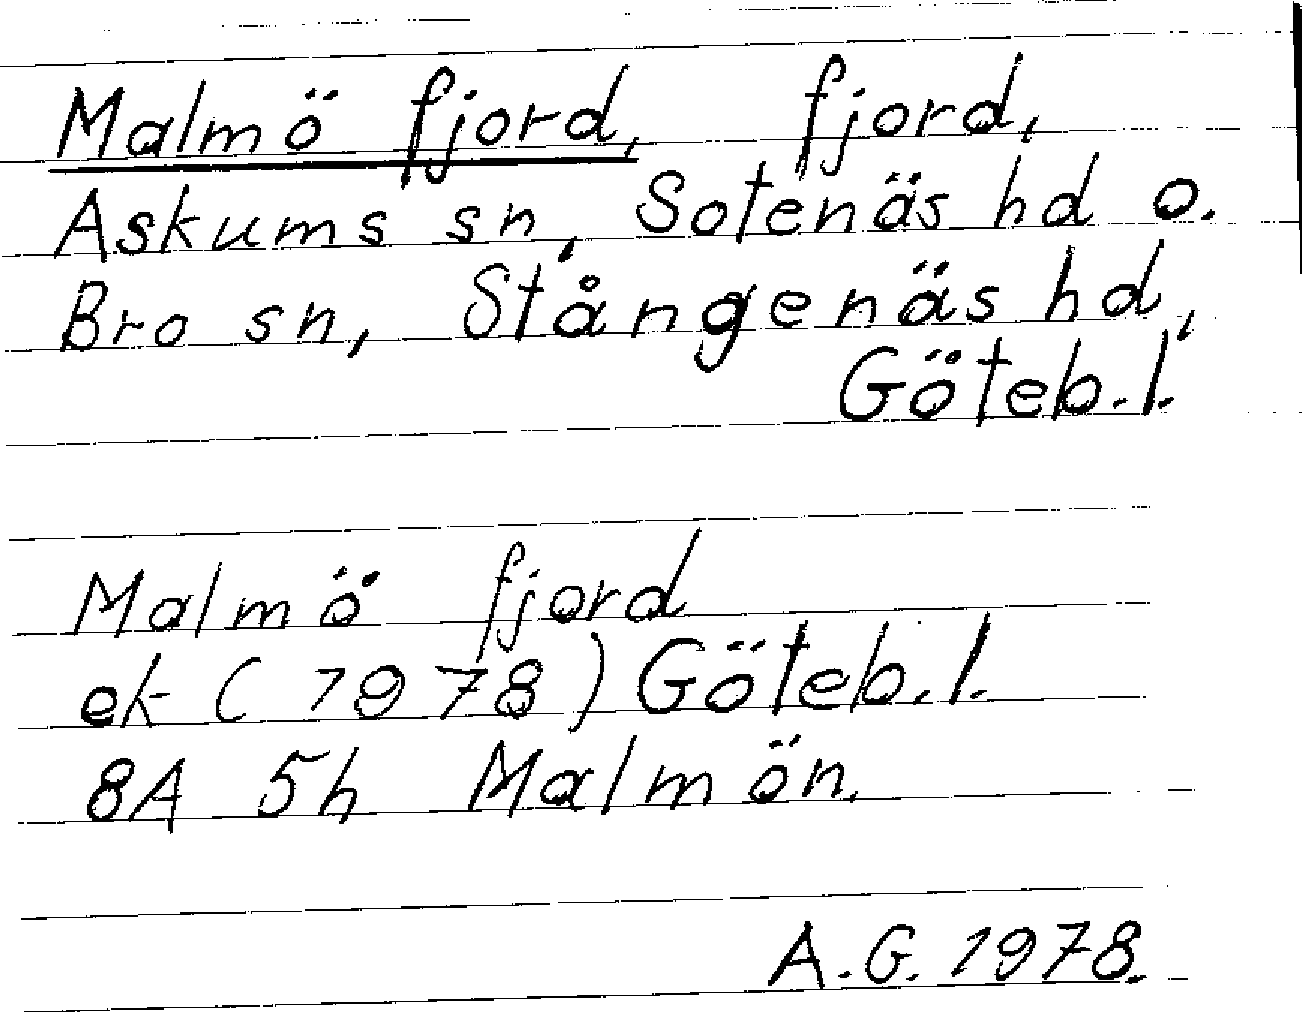 Malmö fjord, fjord,
Askums sn, Sotenäs hd o.
Bro sn, Stångenäs hd,
Göteb. l.
Malmö fjord
ek (1978) Göteb. l.
8A 5h Malmön.
A.G. 1978.